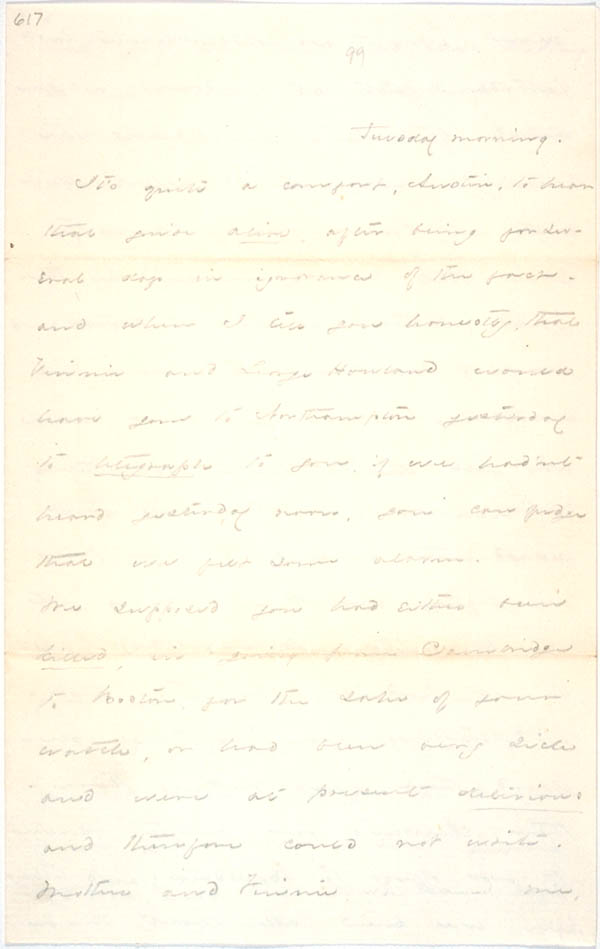 617
99
Tuesday morning.
It's quite a comfort, Austin, to hear
that you're alive, after being for sev-
eral days in ignorance of the fact -
and when I tell you honestly, that
Vinnie and George Howland would
have gone to Northampton yesterday
to telegraph to you, if we hadn't
heard yesterday noon, you can judge
that we felt some alarm.
We supposed you had either been
killed, in going from Cambridge
to Boston, for the sake of your
watch, or had been very sick
and were at present delirious
and therefore could not write.
Mother and Vinnie, me,